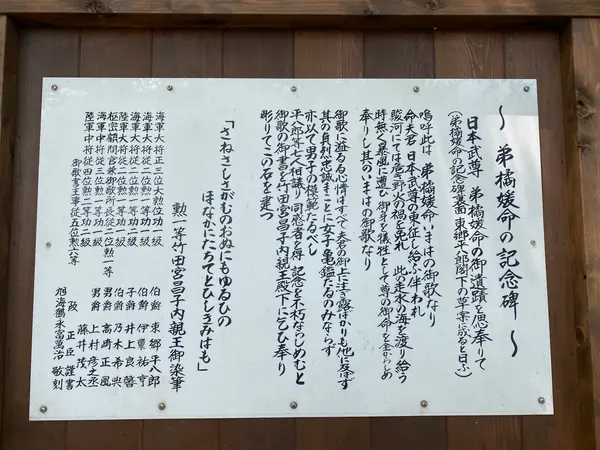 ～ 弟橘媛命の記念碑 ～
日本武尊 弟橘媛命の御遺蹟を思奉りて
（弟橘媛命の記念碑裏面 東郷平八郎閣下の草案に成ると曰ふ）
嗚呼此は 弟橘媛命いまはの御歌なり
命夫君 日本武尊の東征し給ふ伴われ
駿河にては危き野火の禍を免れ 此の走水の海を渡り給う
時俄に暴風に遭ひ御身を犠牲として尊の御命を全からしめ
奉りし其のいまはの御歌なり
御歌に溢るる心情はすべて夫君の御上に注ぎ露ばかりも他に及ばず
其の貞烈忠誠まことに女子亀鑑たるのみならず
亦以て男子の模範たるべし
平八郎等七人相議り同感者を得 記念を不朽ならしめむと
御歌の御書を竹田宮昌子内親王殿下に乞ひ奉り
彫りてこの石を建つ
「さねさしさがむのおぬにもゆるひの
ほなかにたちてとひしきみはも」
勲一等竹田宮昌子内親王御染筆
海軍大将正三位大勲位功一級 伯爵 東郷平八郎
海軍大将従二位勲一等功二級 伯爵 伊東祐亨
海軍大将従二位勲一等功二級 子爵 井上良馨
陸軍大将従二位勲一等功一級 伯爵 乃木希典
枢密顧問官兼御歌所長従二位勲一等 男爵 高崎正風
海軍中将従三位勲一等功一級 男爵 上村彦之丞
陸軍中将従四位勲二等功二級 藤井茂太
御歌書主事従五位勲六等 阪正臣謹書
旭海鶴永富萬治敬刻